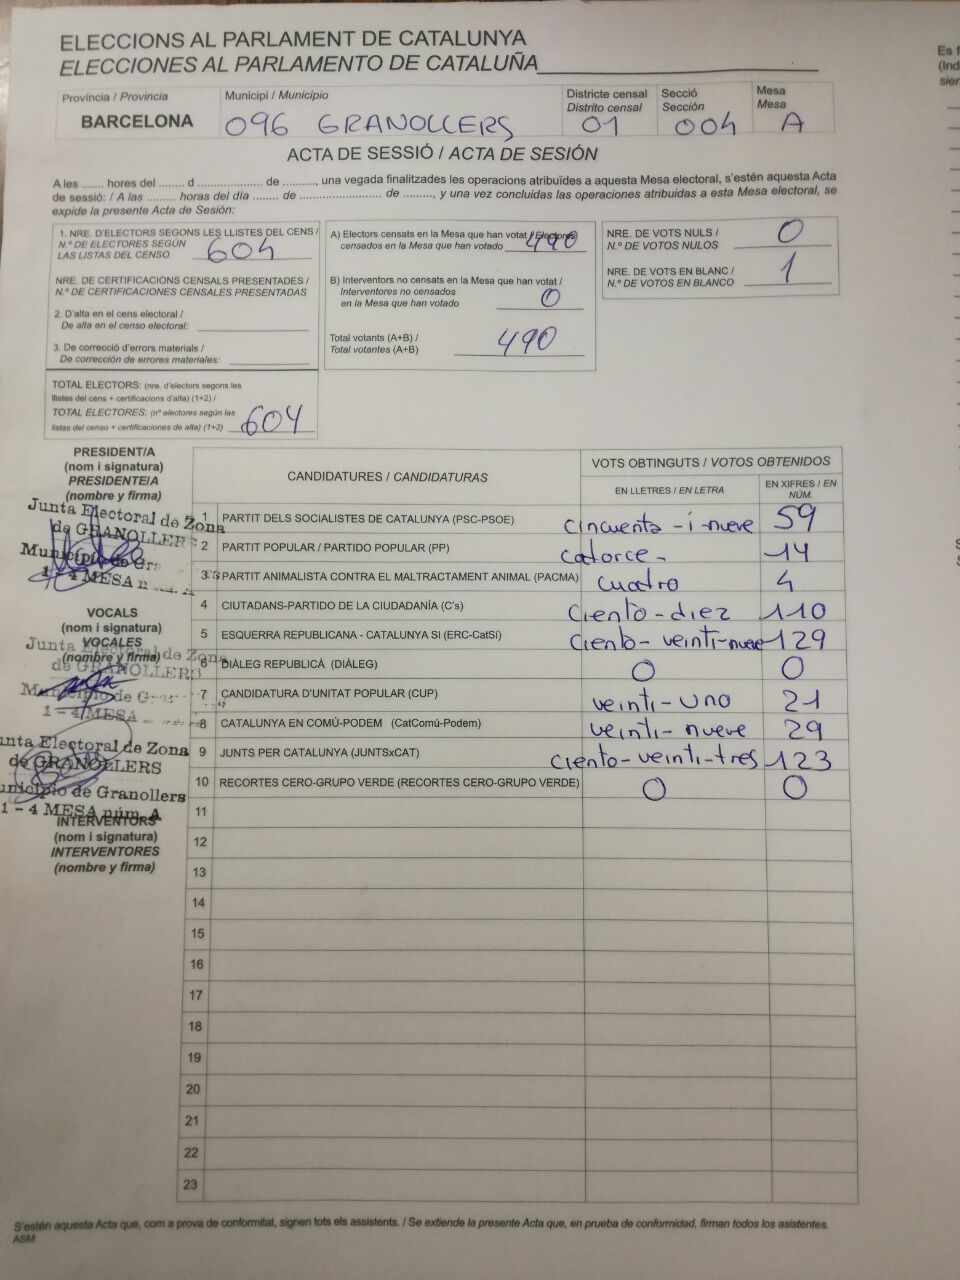 ELECCIONS AL PARLAMENT DE CATALUNYA
ELECCIONES AL PARLAMENTO DE CATALUÑA
Província / Provincia
BARCELONA
Municipi / Municipio
096 GRANOLLERS
Districte censal
Distrito censal
01
Secció
Sección
004
Mesa
Mesa
A
ACTA DE SESSIÓ / ACTA DE SESIÓN
A les ....... hores del ........ d ..................... de .........., una vegada finalitzades les operacions atribuïdes a aquesta Mesa electoral, s'estén aquesta Acta
de sessió: / A las ......... horas del día ........ de ......................... de ........, y una vez concluidas las operaciones atribuidas a esta Mesa electoral, se
expide la presente Acta de Sesión:
1. NRE. D'ELECTORS SEGONS LES LLISTES DEL CENS /
N.º DE ELECTORES SEGÚN
LAS LISTAS DEL CENSO 604
NRE. DE CERTIFICACIONS CENSALS PRESENTADES /
N.º DE CERTIFICACIONES CENSALES PRESENTADAS
2. D'alta en el cens electoral /
De alta en el censo electoral:
3. De correcció d'errors materials /
De corrección de errores materiales:
TOTAL ELECTORS: (nre. d'electors segons les
llistes del cens + certificacions d'alta) (1+2) /
TOTAL ELECTORES: (nº electores según las
listas del censo + certificaciones de alta) (1+2) 604
A) Electors censats en la Mesa que han votat / Electores
censados en la Mesa que han votado 490
B) Interventors no censats en la Mesa que han votat /
Interventores no censados
en la Mesa que han votado 0
Total votants (A+B) /
Total votantes (A+B) 490
NRE. DE VOTS NULS /
N.º DE VOTOS NULOS 0
NRE. DE VOTS EN BLANC /
N.º DE VOTOS EN BLANCO 1
PRESIDENT/A
(nom i signatura)
PRESIDENTE/A
(nombre y firma)
Junta Electoral de Zona
de GRANOLLERS
1 - 4 MESA
VOCALS
(nom i signatura)
VOCALES
(nombre y firma)
Junta Electoral de Zona
de GRANOLLERS
1 - 4 MESA
Electoral de Zona
de GRANOLLERS
de Granollers
1 - 4 MESA núm. A
INTERVENTORS
(nom i signatura)
INTERVENTORES
(nombre y firma)
CANDIDATURES / CANDIDATURAS
VOTS OBTINGUTS / VOTOS OBTENIDOS
EN LLETRES / EN LETRA
EN XIFRES / EN
NÚM.
1 PARTIT DELS SOCIALISTES DE CATALUNYA (PSC-PSOE) Cincuenta-i-nueve 59
2 PARTIT POPULAR / PARTIDO POPULAR (PP) catorce- 14
3 PARTIT ANIMALISTA CONTRA EL MALTRACTAMENT ANIMAL (PACMA) cuatro 4
4 CIUTADANS-PARTIDO DE LA CIUDADANÍA (C's) Ciento-diez 110
5 ESQUERRA REPUBLICANA - CATALUNYA SÍ (ERC-CatSí) Ciento-veinti-nueve 129
6 DIÀLEG REPUBLICÀ (DIÀLEG) 0 0
7 CANDIDATURA D'UNITAT POPULAR (CUP) veinti-uno 21
8 CATALUNYA EN COMÚ-PODEM (CatComú-Podem) veinti-nueve 29
9 JUNTS PER CATALUNYA (JUNTSxCAT) Ciento-veinti-tres 123
10 RECORTES CERO-GRUPO VERDE (RECORTES CERO-GRUPO VERDE) 0 0
11
12
13
14
15
16
17
18
19
20
21
22
23
S'estén aquesta Acta que, com a prova de conformitat, signen tots els assistents. / Se extiende la presente Acta que, en prueba de conformidad, firman todos los asistentes.
ASM